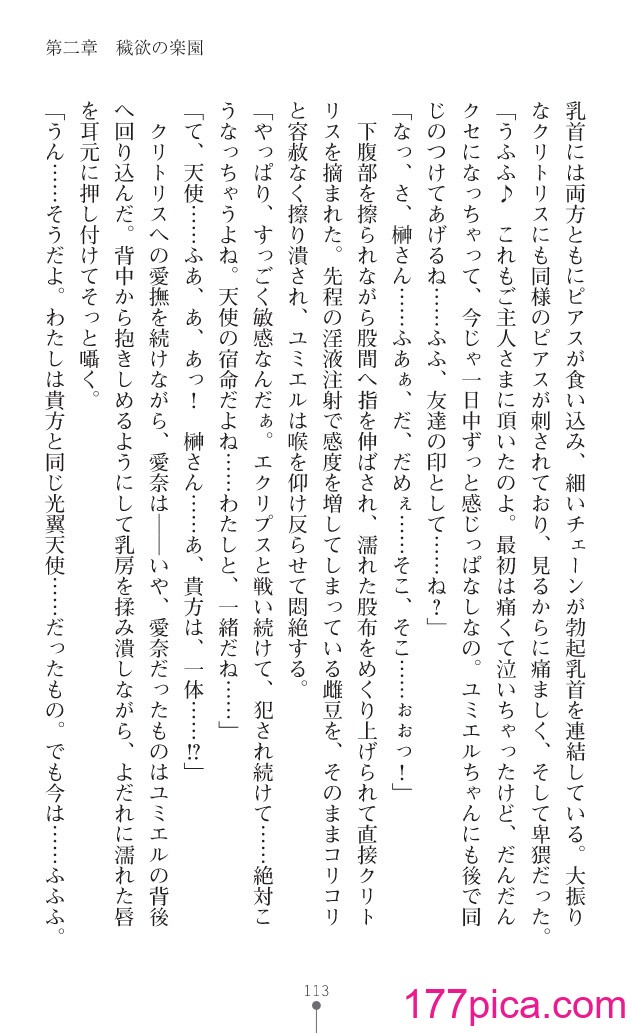 第二章　穢欲の楽園
乳首には両方ともにピアスが食い込み、細いチェーンが勃起乳首を連結している。大振り
なクリトリスにも同様のピアスが刺されており、見るからに痛ましく、そして卑猥だった。
「うふふ♪　これもご主人さまに頂いたのよ。最初は痛くて泣いちゃったけど、だんだん
クセになっちゃって、今じゃ一日中ずっと感じっぱなしなの。ユミエルちゃんにも後で同
じのつけてあげるね……ふふ、友達の印として……ね？」
「なっ、さ、榊さん……ふあぁ、だ、だめぇ……そこ、そこ……ぉぉっ！」
　下腹部を擦られながら股間へ指を伸ばされ、濡れた股布をめくり上げられて直接クリト
リスを摘まれた。先程の淫液注射で感度を増してしまっている雌豆を、そのままコリコリ
と容赦なく擦り潰され、ユミエルは喉を仰け反らせて悶絶する。
「やっぱり、すっごく敏感なんだぁ。エクリプスと戦い続けて、犯され続けて……絶対こ
うなっちゃうよね。天使の宿命だよね……わたしと、一緒だね……」
「て、天使……ふあ、あ、あっ！　榊さん……あ、貴方は、一体……!?」
　クリトリスへの愛撫を続けながら、愛奈は――いや、愛奈だったものはユミエルの背後
へ回り込んだ。背中から抱きしめるようにして乳房を揉み潰しながら、よだれに濡れた唇
を耳元に押し付けてそっと囁く。
「うん……そうだよ。わたしは貴方と同じ光翼天使……だったもの。でも今は……ふふふ。
113
177pica.com